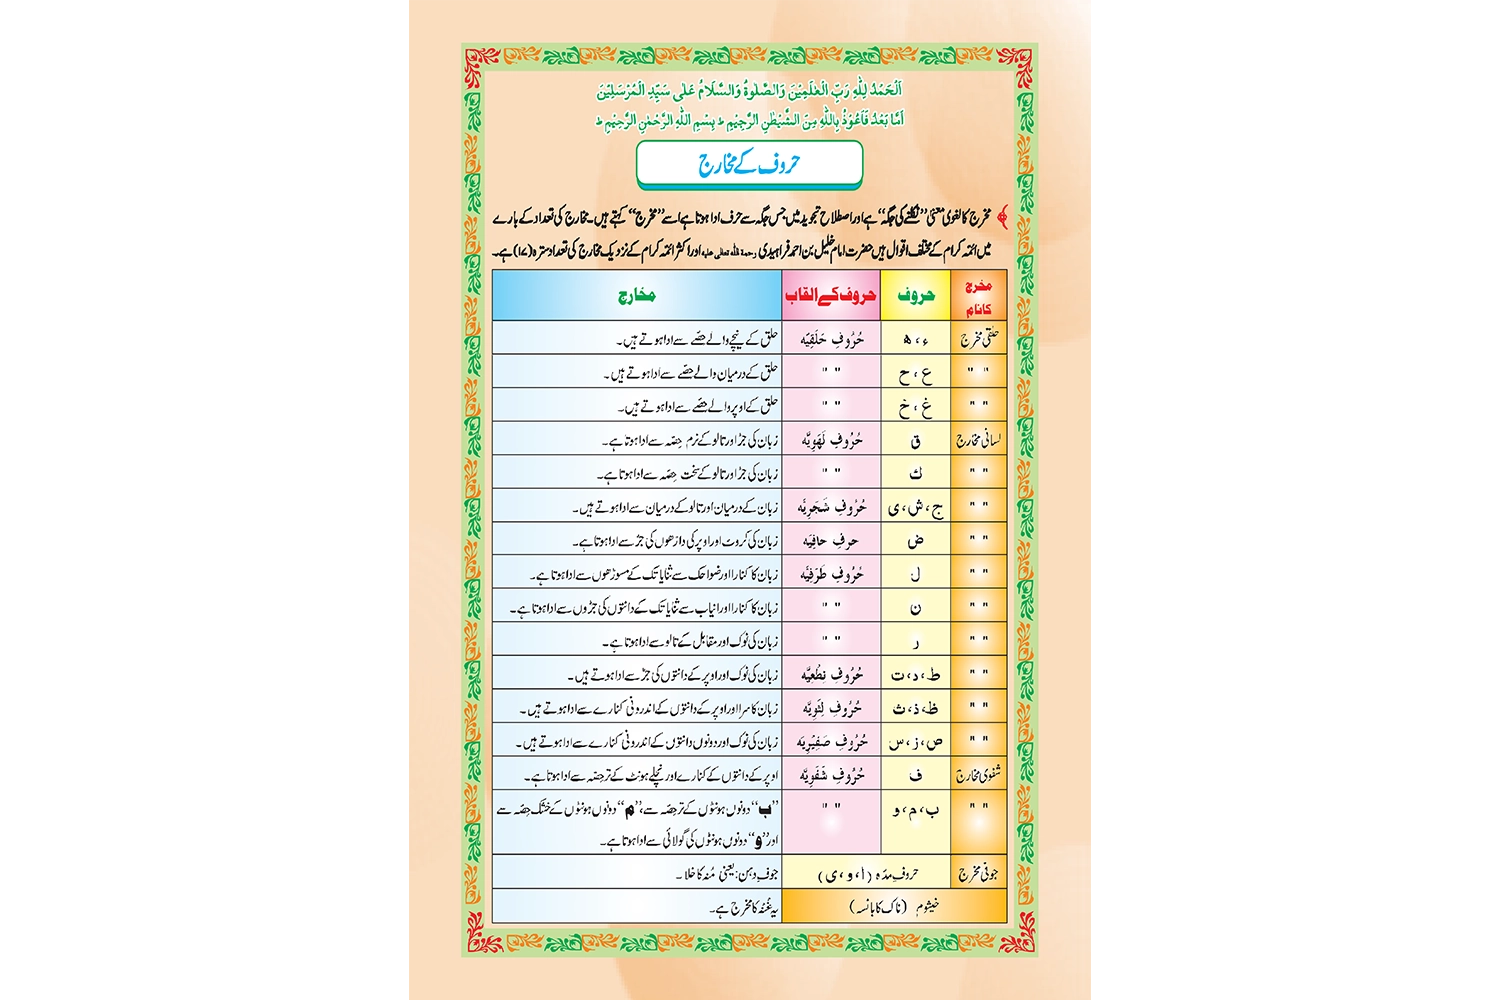 اَلْحَمْدُ لِلّٰهِ رَبِّ الْعٰلَمِيْنَ وَالصَّلٰوةُ وَالسَّلَامُ عَلٰى سَيِّدِ الْمُرْسَلِيْنَ
اَمَّا بَعْدُ فَاَعُوْذُ بِاللّٰهِ مِنَ الشَّيْطٰنِ الرَّجِيْمِ ط بِسْمِ اللّٰهِ الرَّحْمٰنِ الرَّحِيْمِ ط
حروف کے مخارج
مخرج کا لغوی معنی ’’نکلنے کی جگہ‘‘ ہے اور اصطلاح تجوید میں جس جگہ سے حرف ادا ہوتا ہے اسے ’’مخرج‘‘ کہتے ہیں۔ مخارج کی تعداد کے بارے
میں ائمہ کرام کے مختلف اقوال ہیں حضرت امام خلیل بن احمد فراہیدی رحمۃ اللہ تعالٰی علیہ اور اکثر ائمہ کرام کے نزدیک مخارج کی تعداد سترہ (۱۷) ہے۔
مخرج کا نام حروف حروف کے القاب مخارج
حلقی مخرج ء ، ھ حُرُوفِ حَلَقِيَّه حلق کے نیچے والے حصّے سے ادا ہوتے ہیں۔
" " ع ، ح " " حلق کے درمیان والے حصّے سے ادا ہوتے ہیں۔
" " غ ، خ " " حلق کے اوپر والے حصّے سے ادا ہوتے ہیں۔
لسانی مخارج ق حُرُوفِ لَهَوِيَّه زبان کی جڑ اور تالو کے نرم حِصّہ سے ادا ہوتا ہے۔
" " ك " " زبان کی جڑ اور تالو کے سخت حِصّہ سے ادا ہوتا ہے۔
" " ج ، ش ، ی حُرُوفِ شَجَرِيَّه زبان کے درمیان اور تالو کے درمیان سے ادا ہوتے ہیں۔
" " ض حرفِ حافِيَه زبان کی کروٹ اور اوپر کی داڑھوں کی جڑ سے ادا ہوتا ہے۔
" " ل حُرُوفِ طَرَفِيَّه زبان کا کنارا اور ضواحک سے ثنایا تک کے مسوڑھوں سے ادا ہوتا ہے۔
" " ن " " زبان کا کنارا اور انیاب سے ثنایا تک کے دانتوں کی جڑوں سے ادا ہوتا ہے۔
" " ر " " زبان کی نوک اور مقابل کے تالو سے ادا ہوتا ہے۔
" " ط ، د ، ت حُرُوفِ نِطْعِيَّه زبان کی نوک اور اوپر کے دانتوں کی جڑ سے ادا ہوتے ہیں۔
" " ظ ، ذ ، ث حُرُوفِ لِثَوِيَّه زبان کا سرا اور اوپر کے دانتوں کے اندرونی کنارے سے ادا ہوتے ہیں۔
" " ص ، ز ، س حُرُوفِ صَفِيْرِيَه زبان کی نوک اور دونوں دانتوں کے اندرونی کنارے سے ادا ہوتے ہیں۔
شفوی مخارج ف حُرُوفِ شَفَوِيَّه اوپر کے دانتوں کے کنارے اور نچلے ہونٹ کے تر حِصّہ سے ادا ہوتا ہے۔
" " ب ، م ، و " " ’’ب‘‘ دونوں ہونٹوں کے تر حِصّہ سے، ’’م‘‘ دونوں ہونٹوں کے خشک حِصّہ سے
اور ’’و‘‘ دونوں ہونٹوں کی گولائی سے ادا ہوتا ہے۔
جوفی مخرج حروفِ مدّہ (ا ، و ، ی) جوفِ دہن: یعنی مُنہ کا خلا۔
خیشوم (ناک کا بانسہ) یہ غُنّہ کا مخرج ہے۔